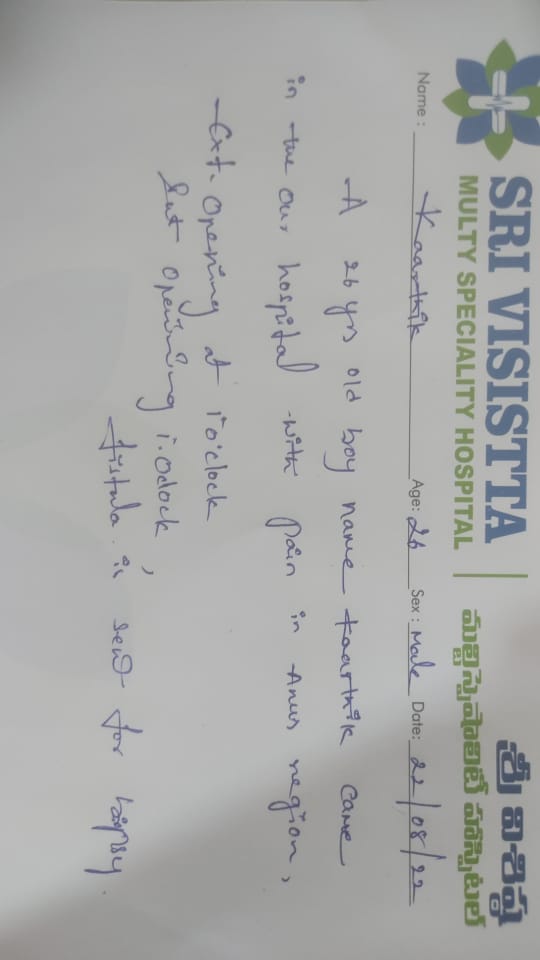 SRI VISISTTA
MULTY SPECIALITY HOSPITAL
శ్రీ విశిష్ట
మల్టీ స్పెషాలిటీ హాస్పిటల్
Name : Kaarthik Age: 26 Sex : Male Date: 22/08/22
A 26 yrs old boy name kaarthik came
in the our hospital with pain in Anus region,
- Ext. opening at 1 o'clock
Int opening 1. oclock,
fistula. is send for biopsy.